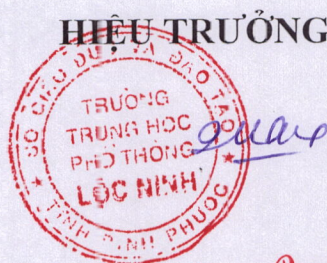 HIỆU TRƯỞNG
SỞ GIÁO DỤC VÀ ĐÀO TẠO
TRƯỜNG
TRUNG HỌC
PHỔ THÔNG
LỘC NINH
TỈNH BÌNH PHƯỚC